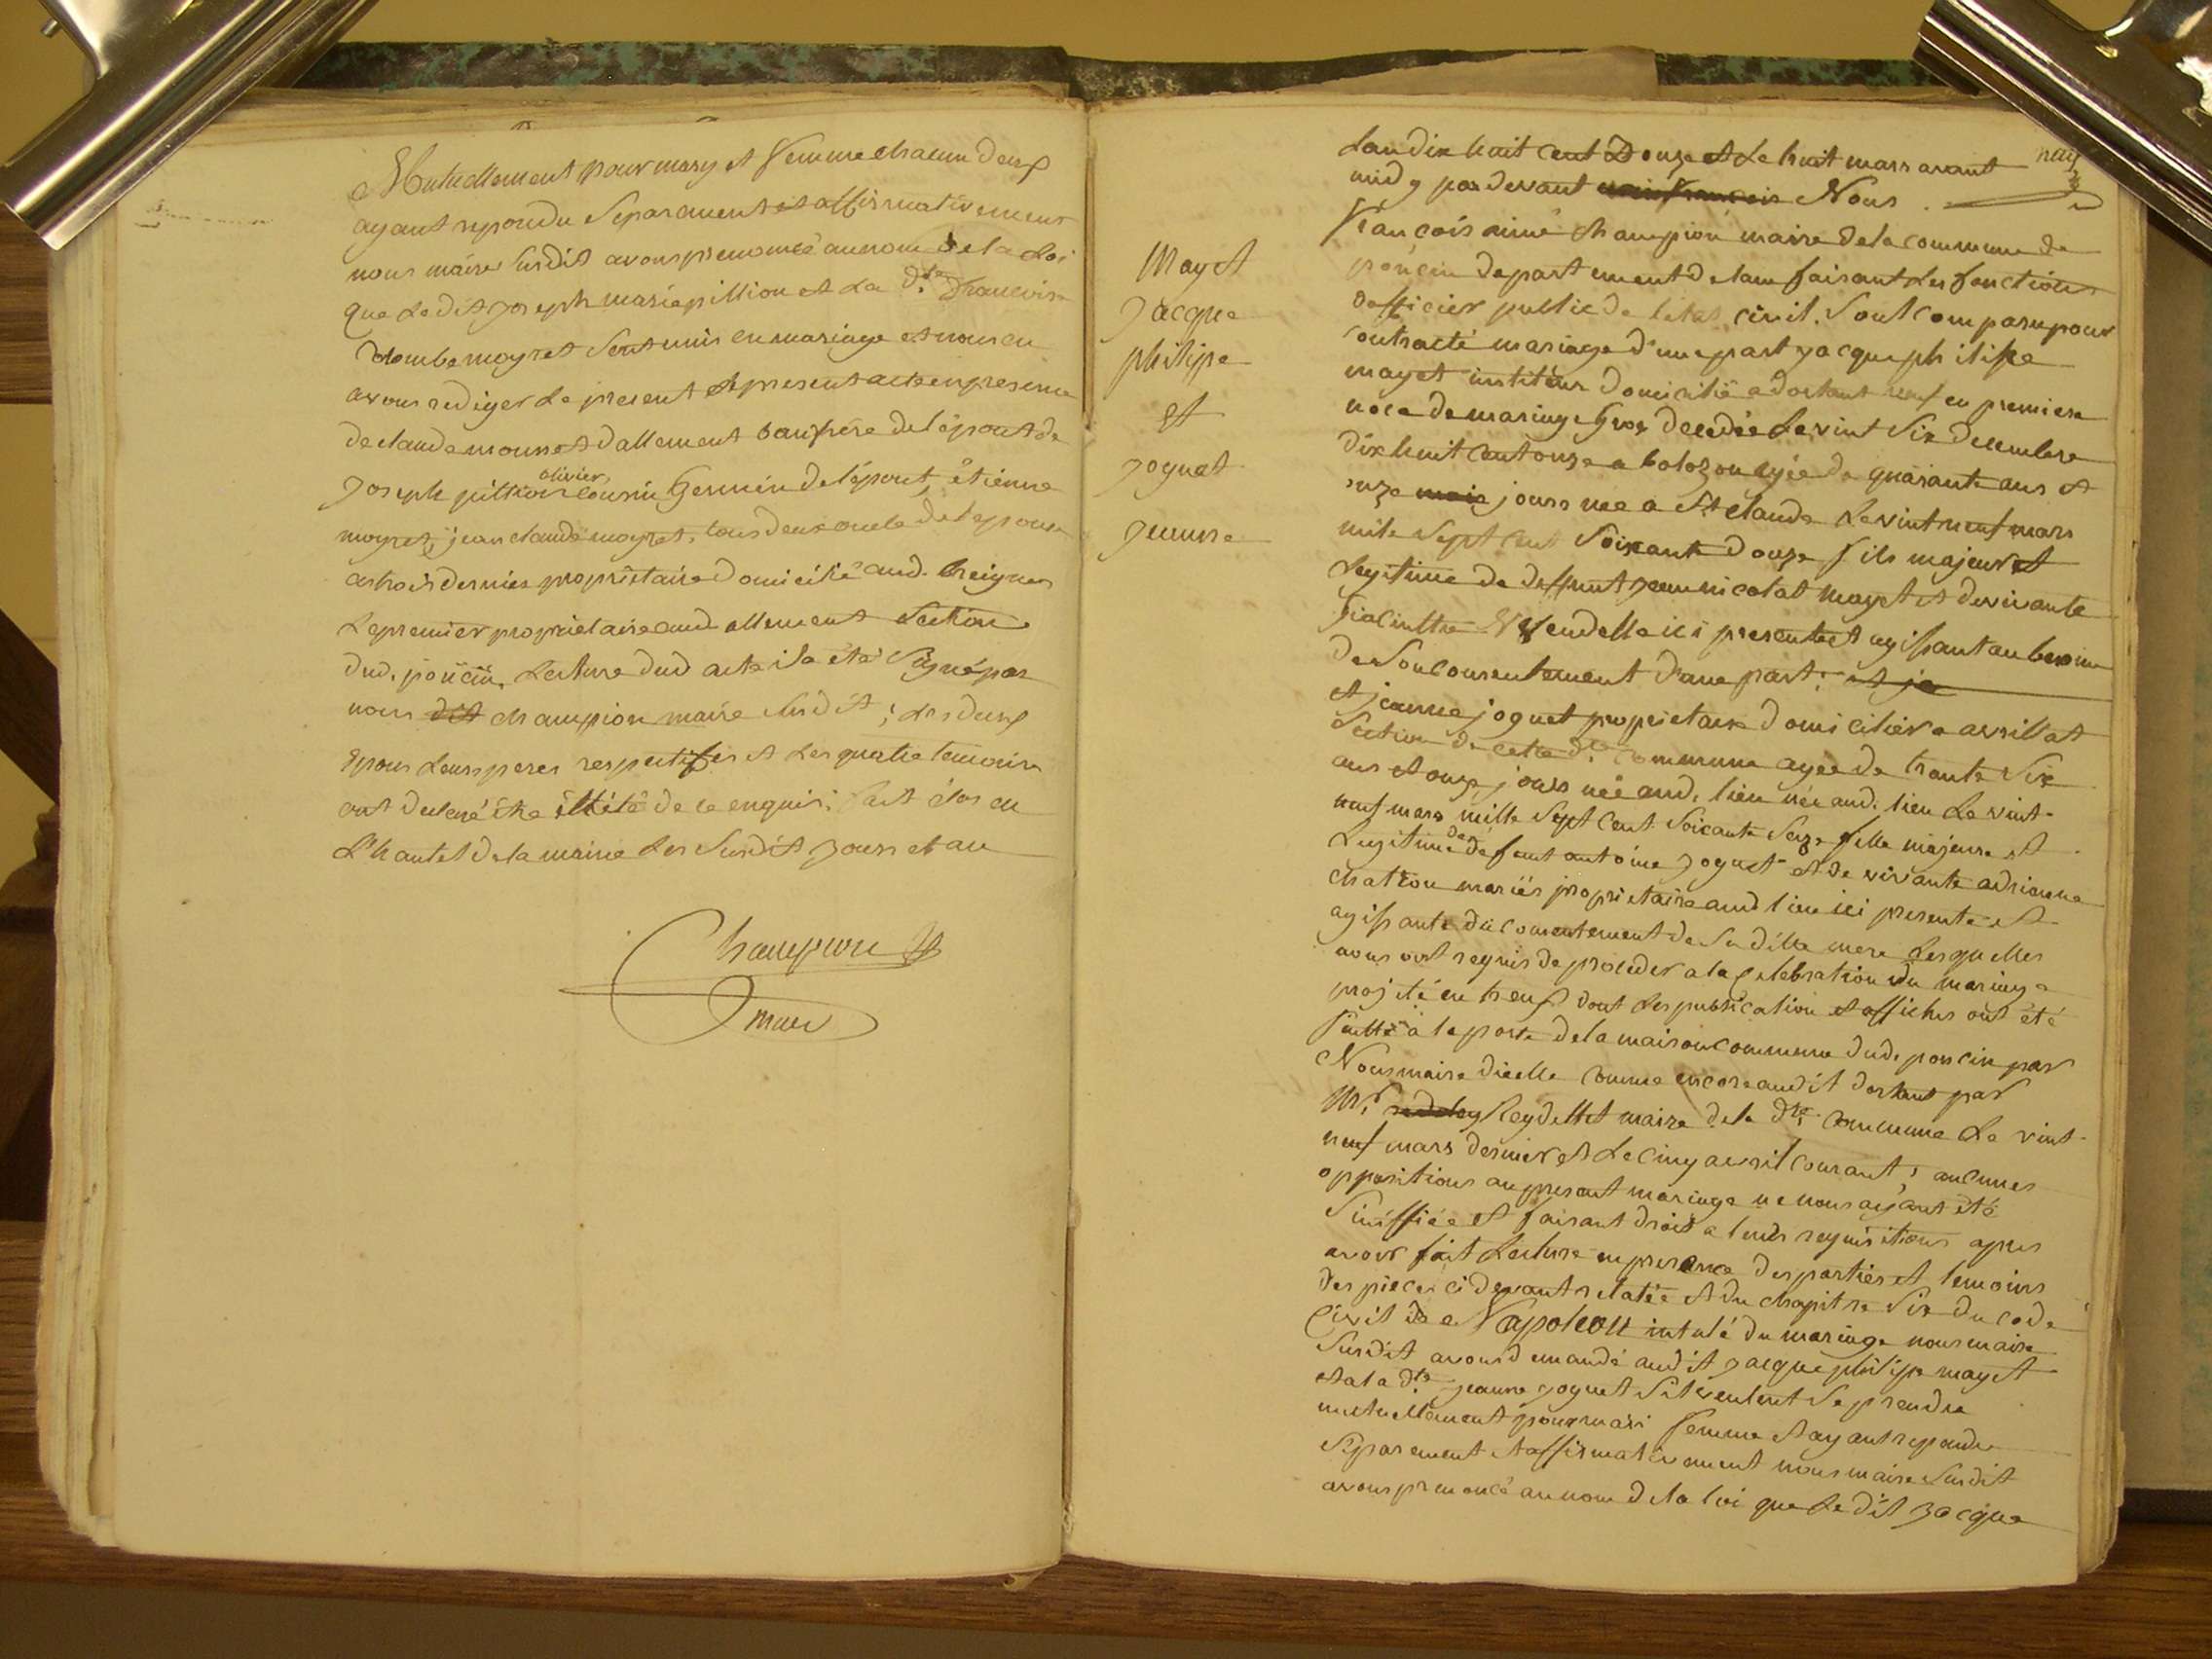 Mutuellement pour mary et femme chacun deux
ayant repondu Separement et affirmativement
nous maire Susdit avons prenoncé au nom de la Loi
que Ledit joseph marie pillion et La dte francoise
Colombe moyret Sont unis en mariage et nous en
avons rediger Le present et present acte en presence
de claude mounet dallement baufrere de lépout de
joseph pillion olivier cousin Germin de lépout, étienne
moyret, jean claude moyret, tous deux oncle de lepouse
Le premier proprietaire aud allement Section
dud. poncin, Lecture dud acte il a été Signé par
nous dit champion maire susdit; Les deux
Epoux Leurs peres respectifes et Les quatre temoins
ont declaré être illitéré de ce enquis; fait clos en
L'hautel de la mairie Les Susdit jours et an
Champion
maire
Lan dix huit cent Douze et Le huit mars avant
midy par devant Nous
François aimé champion maire de la commune de
poncin departement de lain faisant Les fonctions
dofficier public de letat civil. Sont comparu pour
contracté mariage d'une part jacque philipe
mayet institeur domicilié a dortant veuf en premiere
noce de mariage decedée Le vint Six decembre
dix huit cent onze a bolozon agée de quarante ans et
onze mois jours née a St claude Le vint neuf mars
mile Sept cent Soixante douze fils majeur et
Legitime de deffunt jean nicolat mayet et de vivante
hiacinthe Vendelle ici presente et agissant au besoin
de Son consentement d'une part; et je
et jeanne joguet proprietaire domicilier a avrillat
Section de cette dte commune agée de trente Six
ans et onze jours née aud. lieu née aud. lieu Le vint-
neuf mars mille Sept cent Soixante Seze fille majeure et
Legitime de defeunt antoine joguet et de vivante adrienne
chatrou mariés proprietaire aud lieu ici presente et
agissante du consentement de Sa ditte mere Lesquelles
nous ont requis de proceder a la Celebration du mariage
projeté en treux dont Les publication et affiches ont été
faitte a la porte de la maison commune dud. poncin par
Nous maire dicelle comme encore audit dortant par
Mr. Reydellet maire de la dte commune Le vint-
neuf mars dernier et Le cinq avril courant; aucunes
oppositions au present mariage ne nous ayant été
Siniffiée et faisant droit a leurs requisitions apres
avoir fait Lecture en presence des parties et temoins
des pieces ci devant relatée et du chapitre Six du code
Civil de Napoleon intulé du mariage nous maire
Susdit avons demandé audit jacque philipe mayet
et a la dte jeanne joguet S'il veulent Se prendre
mutuellement pour mari femme et ayant repondu
Separement et affirmativement nous maire Susdit
avons prenoncé au nom de la loi que Ledit jacque
Mayet
jacque
philipe
et
joguet
jeanne